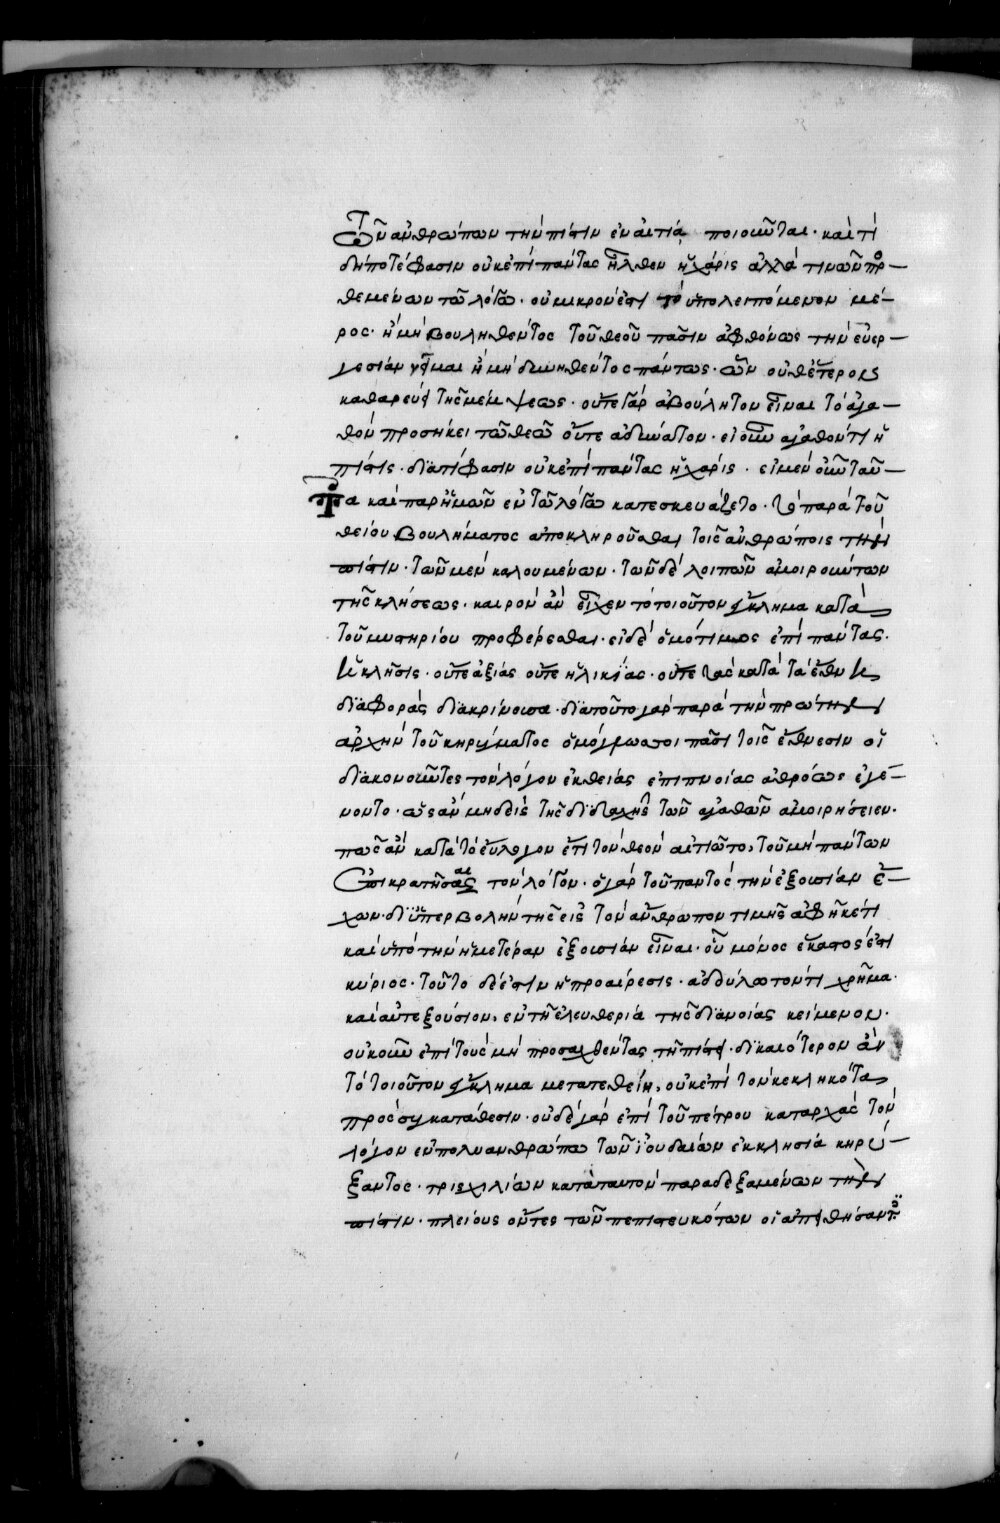 τῶν ἀνθρώπων τὴν πίστιν ἐν αἰτίᾳ ποιοῦνται· καὶ τί
δήποτέ φασιν οὐκ ἐπὶ πάντας ἦλθεν ἡ χάρις ἀλλά τινων πρ
θεμένων τῶ λόγω· οὐ μικρόν ἐστι τὸ ὑπολειπόμενον μέ–
ρος· ἢ μὴ βουληθέντος τοῦ θεοῦ πᾶσιν ἀφθόνως τὴν εὐερ–
γεσίαν νεῖμαι ἢ μὴ δυνηθέντος πάντως· ὧν οὐθέτερον
καθαρεύει τῆς μέμψεως· οὔτε γὰρ ἀβούλητον εἶναι τὸ ἀγα–
θὸν προσήκει τῶ θεῶ οὔτε ἀδυνατον· εἰ οὖν ἀγαθόν τι ἡ
πίστις· διατί φασιν οὐκ ἐπὶ πάντας ἡ χάρις· εἰ μὲν οὖν ταῦ–
τα καὶ παρ' ἡμῶν ἐν τῶ λόγω κατεσκευάζετο· τὸ παρὰ τοῦ
θείου βουλήματος ἀποκληροῦσθαι τοῖς ἀνθρώποις τὴν
πίστιν· τῶν μὲν καλουμένων· τῶν δὲ λοιπῶν ἀμοιρούντων
τῆς κλήσεως· καιρὸν ἂν εἶχεν τὸ τοιοῦτον ἔγκλημα κατὰ
τοῦ μυστηρίου προφέρεσθαι· εἰ δὲ ὁμότιμος ἐπὶ πάντας
ἡ κλῆσις· οὔτε ἀξίας οὔτε ἡλικίας· οὔτε τὰς κατὰ τὰ ἔθνη
διαφορὰς διακρίνουσα· διατοῦτο γὰρ παρὰ τὴν πρώτην
ἀρχὴν τοῦ κηρύγματος ὁμόγλωσσοι πᾶσι τοῖς ἔθνεσιν οἱ
διακονοῦντες τὸν λόγον ἐκ θείας ἐπιπνοίας ἀθρόως ἐγέ–
νοντο· ὡς ἂν μηδεὶς τῆς διδαχῆς τῶν ἀγαθῶν ἀμοιρήσειεν·
πῶς ἂν κατὰ τὸ εὔλογον ἔτι τὸν θεὸν αἰτιῶτο, τοῦ μὴ πάντων
ἐπικρατῆσαι τὸν λόγον· ὁ γὰρ τοῦ παντὸς τὴν ἐξουσίαν ἔ–
χων· δι' ὑπερβολὴν τῆς εἰς τὸν ἄνθρωπον τιμῆς ἀφῆκέ τι
καὶ ὑπὸ τὴν ἡμετέραν ἐξουσίαν εἶναι· οὗ μόνος ἕκαστός ἐστι
κύριος· τοῦτο δέ ἐστιν ἡ προαίρεσις· ἀδούλωτόν τι χρῆμα·
καὶ αὐτεξούσιον, ἐν τῆ ἐλευθερία τῆς διανοίας κείμενον·
οὐκοῦν ἐπὶ τοὺς μὴ προσαχθέντας τῆ πίστει· δικαιότερον ἂν
τὸ τοιοῦτον ἔγκλημα μετατεθείη, οὐκ ἐπὶ τὸν κεκληκότα
πρὸς συγκατάθεσιν· οὐδὲ γὰρ ἐπὶ τοῦ πέτρου καταρχὰς τὸν
λόγον ἐν πολυανθρώπω τῶν ἰουδαίων ἐκκλησία κηρύ–
ξαντος· τρισχιλίων κατὰ ταυτὸν παραδεξαμένων τὴν
πίστιν· πλείους ὄντες τῶν πεπιστευκότων οἱ ἀπειθήσαντες